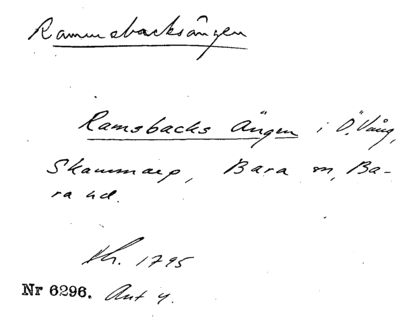 Rammebacksängen
Ramsbacks Ängen i Ö. Vång,
Skammarp, Bara sn, Ba-
ra hd.
1795
Nr 6296. Ant 4.